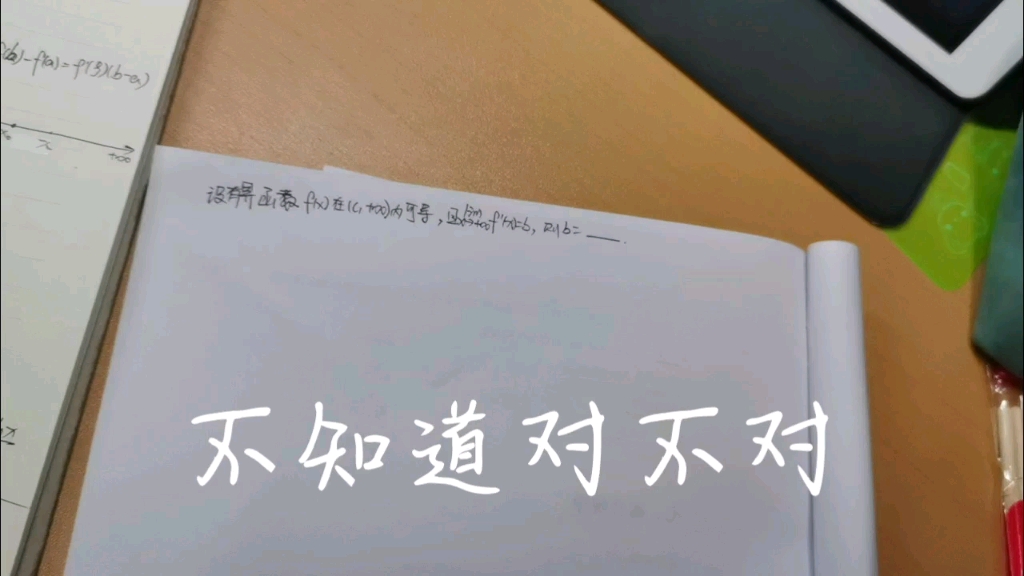 f(b)-f(a)=f'(ξ)(b-a)
x₀ x +∞
设有界函数f(x)在(c,+∞)内可导,且lim x→+∞ f'(x)=b,则b=____.
不知道对不对